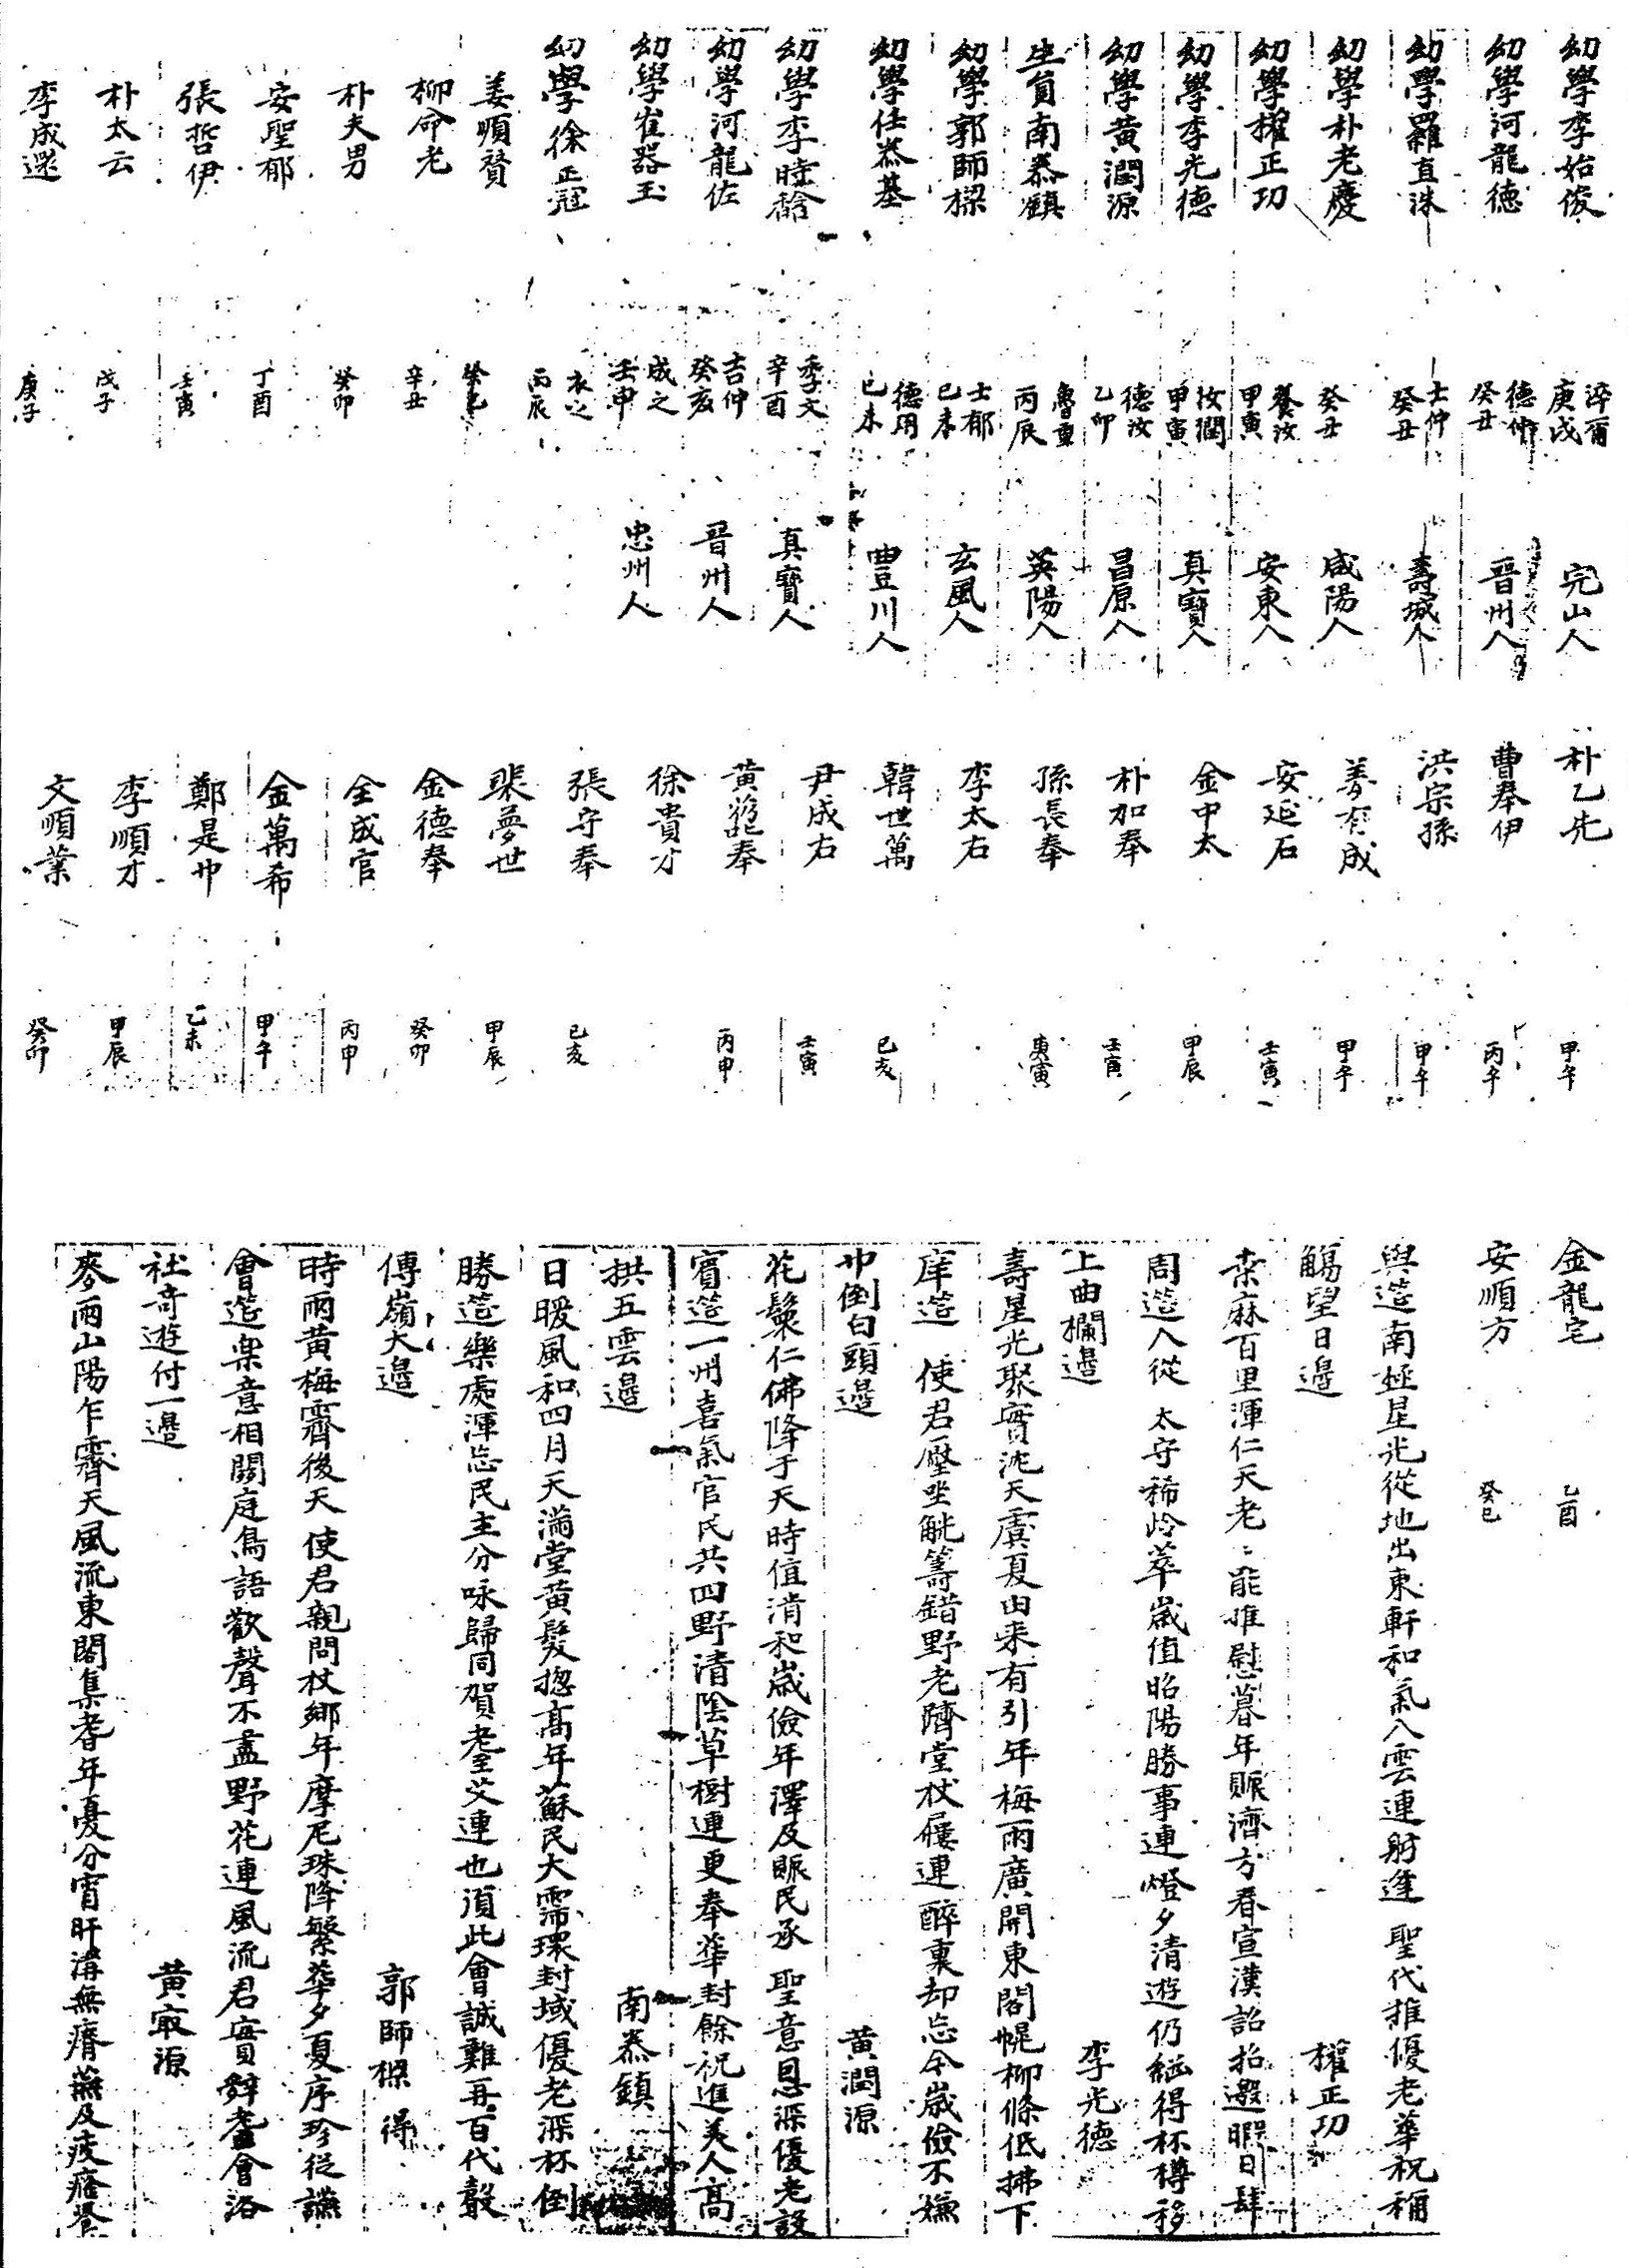 幼學李始俊 淬甫 庚戌 完山人
幼學河龍德 德仲 癸丑 晉州人
幼學羅直洙 士仲 癸丑 壽城人
幼學朴老慶 癸丑 咸陽人
幼學權正功 養汝 甲寅 安東人
幼學李光德 汝潤 甲寅 真寶人
幼學黃潤源 德汝 乙卯 昌原人
生員南泰鎮 魯重 丙辰 英陽人
幼學郭師樑 士郁 己未 玄風人
幼學任泰基 德用 己未 豊川人
幼學李時 季文 辛酉 真寶人
幼學河龍佐 吉仲 癸亥 晉州人
幼學崔器玉 成之 壬申 忠州人
幼學徐正冠 衣之 丙辰
姜順贊 癸巳
柳命老 辛丑
朴夫男 癸卯
安聖郁 丁酉
張哲伊 壬寅
朴太云 戊子
李成還 庚子
朴乙先 甲午
曹奉伊 丙午
洪宗孫 甲午
姜有成 甲午
安延石 壬寅
金中太 甲辰
朴加奉 壬寅
孫長奉 庚寅
李太右
韓世萬 己亥
尹成右 壬寅
黃起奉 丙申
徐貴才
張守奉 己亥
裴夢世 甲辰
金德奉 癸卯
全成官 丙申
金萬希 甲午
鄭是中 乙未
李順才 甲辰
文順業 癸卯
金龍宅 乙酉
安順方 癸巳
與造南極星光從地出東軒和氣入雲連躬逢 聖代推優老華祝稱
觴望日邊 權正功
桒麻百里渾仁天老〻能推慰暮年賑濟方春宣漢詔招邀暇日肆
周造入從 太守稀岭萃歲値昭陽勝事連燈夕清遊仍継得杯樽移
上曲欄邊 李光德
壽星光聚實沈天虞夏由来有引年梅雨廣開東閣幌柳條低拂下
庠造 使君壓坐觥籌錯野老躋堂杖屨連醉裏却忘今歲儉不嫌
巾倒白頭邊 黃潤源
花鬘仁佛降于天時值清和歲儉年澤及賑民承 聖意恩深優老設
賓造一州喜氣官民共四野清陰草樹連更奉華封餘祝進美人高
拱五雲邊 南泰鎮
日暖風和四月天滿堂黃髮揔高年蘇民大霈環封域優老深杯倒
勝造樂處渾忘民主分咏歸同賀耋艾連也須此會誠難再百代穀
傳嶺大邊 郭師樑 得
時雨黃梅霽後天使君親問杖鄉年摩尼珠降繁華夕夏序珍從讌
會造楽意相關庭鳥語歡聲不盡野花連風流君實辭耆會洛
社奇遊付一邊 黃㝡源
麥雨山陽乍霽天風流東閣集耆年憂分宵旰溝無瘠蕪及疲癃